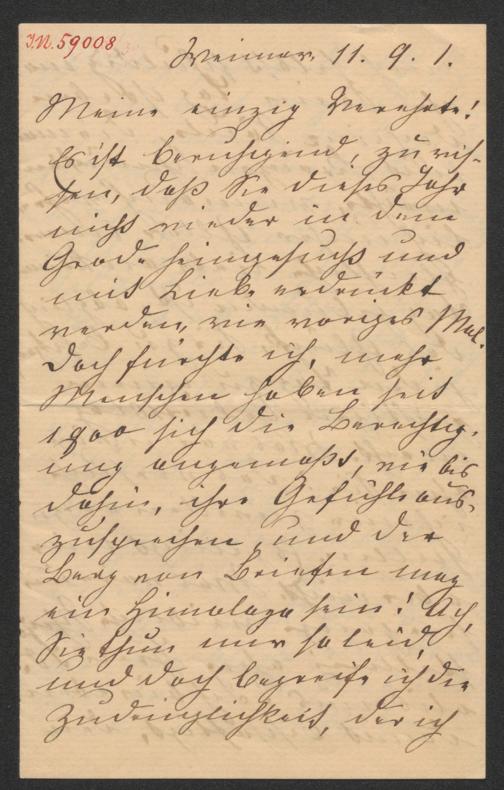 J.N. 59008
Weimar. 11. 9. 1.
Meine einzig Verehrte!
Es ist beruhigend, zu wis-
sen, daß Sie dieses Jahr
nicht wieder in dem
Grade heimgesucht und
mit Liebe erdrückt
werden, wie voriges Mal.
Doch fürchte ich, mehr
Menschen haben seit
1900 sich die Berechtig-
ung angemaßt, wie bis
dahin, ihre Gefühle aus-
zusprechen, und der
Berg von Briefen mag
ein Himalaya sein! Ach,
Sie thun mir so leid,
und doch begreife ich die
Zudringlichkeit, der ich